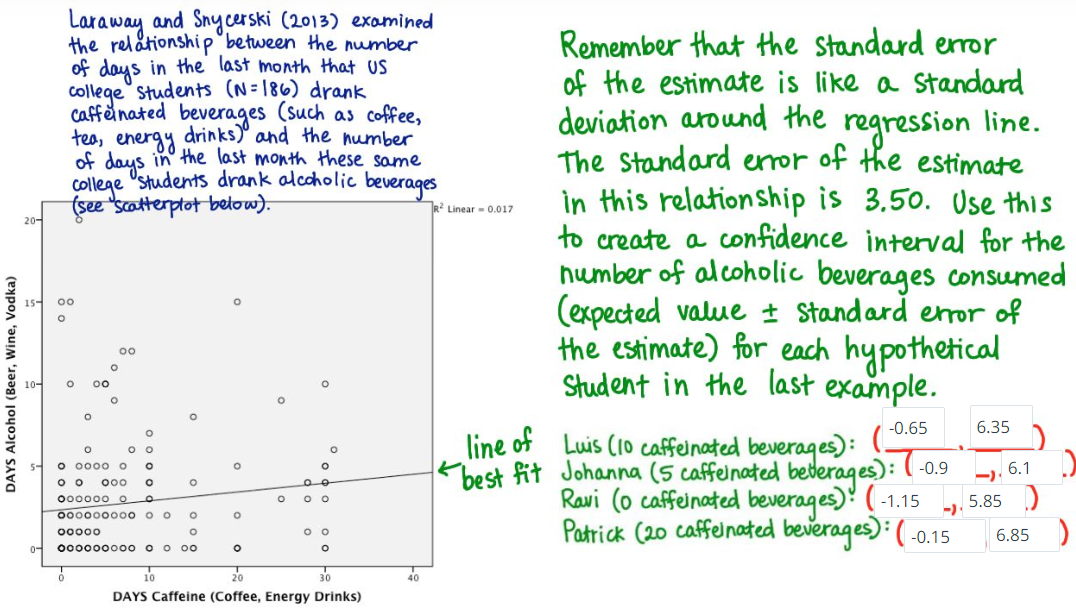 Laraway and Snycerski (2013) examined
the relationship between the number
of days in the last month that US
college students (N=186) drank
caffeinated beverages (such as coffee,
tea, energy drinks) and the number
of days in the last month these same
college students drank alcoholic beverages
(see scatterplot below).
R² Linear = 0.017
DAYS Alcohol (Beer, Wine, Vodka)
20
15
10
5
0
0 10 20 30 40
DAYS Caffeine (Coffee, Energy Drinks)
line of
best fit
Remember that the standard error
of the estimate is like a standard
deviation around the regression line.
The standard error of the estimate
in this relationship is 3.50. Use this
to create a confidence interval for the
number of alcoholic beverages consumed
(expected value ± standard error of
the estimate) for each hypothetical
student in the last example.
Luis (10 caffeinated beverages): (-0.65, 6.35)
Johanna (5 caffeinated beverages): (-0.9, 6.1)
Ravi (0 caffeinated beverages): (-1.15, 5.85)
Patrick (20 caffeinated beverages): (-0.15 6.85)